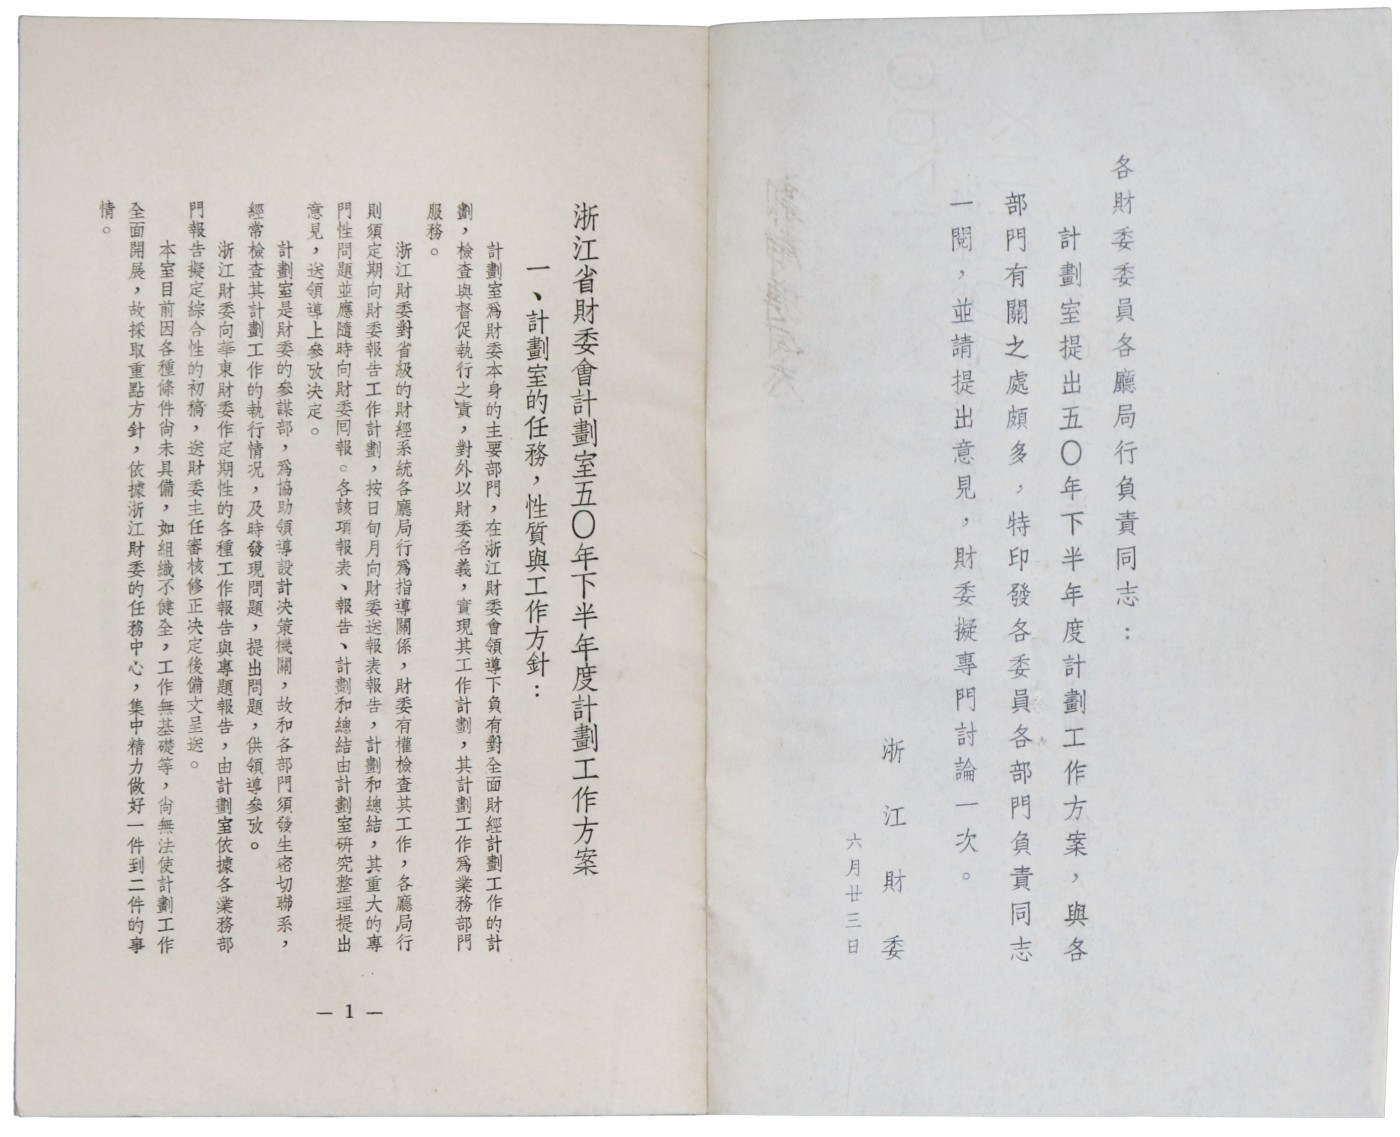 各財委委員各廳局行負責同志：
計劃室提出五〇年下半年度計劃工作方案，與各
部門有關之處頗多，特印發各委員各部門負責同志
一閱，並請提出意見，財委擬專門討論一次。
浙江財委
六月廿三日
浙江省財委會計劃室五〇年下半年度計劃工作方案
一、計劃室的任務，性質與工作方針：
計劃室爲財委本身的主要部門，在浙江財委會領導下負有對全面財經計劃工作的計
劃，檢查與督促執行之責，對外以財委名義，實現其工作計劃，其計劃工作爲業務部門
服務。
浙江財委對省級的財經系統各廳局行爲指導關係，財委有權檢查其工作，各廳局行
則須定期向財委報告工作計劃，按日旬月向財委送報表報告，計劃和總結，其重大的專
門性問題並應隨時向財委囘報。各該項報表、報告、計劃和總結由計劃室研究整理提出
意見，送領導上參攷決定。
計劃室是財委的參謀部，爲協助領導設計决策機關，故和各部門須發生密切聯系，
經常檢查其計劃工作的執行情况，及時發現問題，提出問題，供領導參攷。
浙江財委向華東財委作定期性的各種工作報告與專題報告，由計劃室依據各業務部
門報告擬定綜合性的初稿，送財委主任審核修正决定後備文呈送。
本室目前因各種條件尙未具備，如組織不健全，工作無基礎等，尙無法使計劃工作
全面開展，故採取重點方針，依據浙江財委的任務中心，集中精力做好一件到二件的事
情。
— 1 —